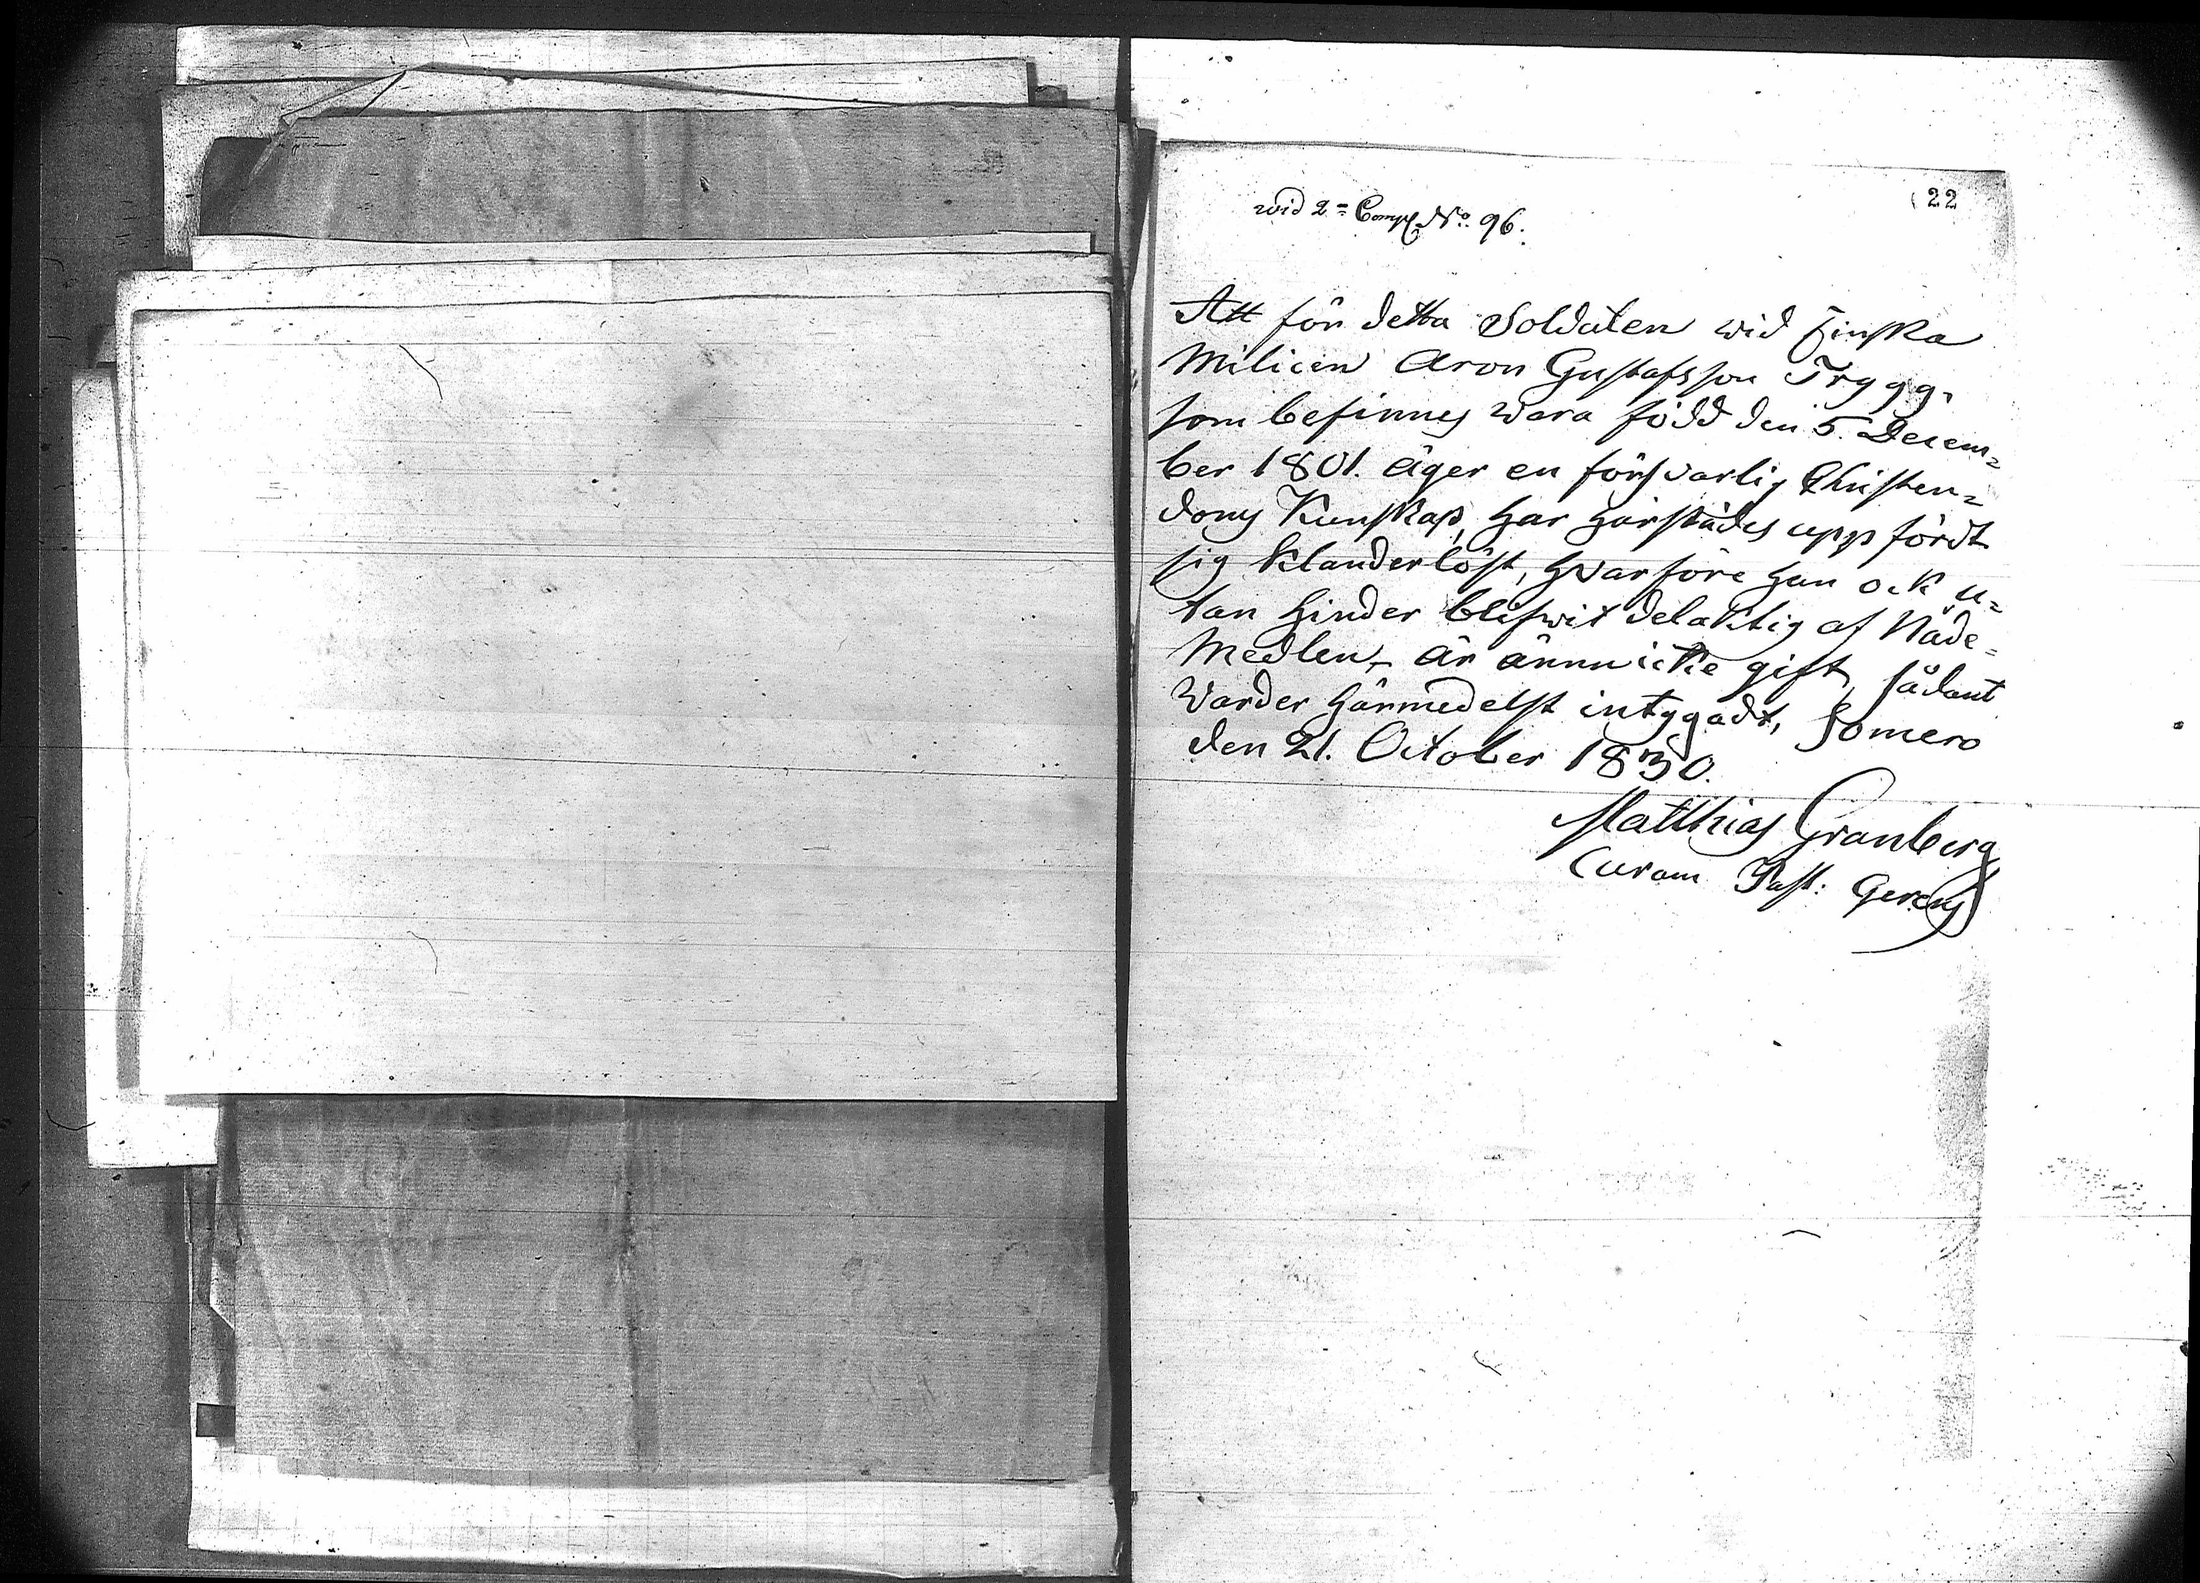 22
wid 2= Comp. No. 96.
Att för detta Soldaten wid Finska
Milicen Aron Gustafsson Trygg,
som befinnes wara född den 5. Decem=
ber 1801. äger en förswarlig Christen=
doms Kunskap, har härstädes uppfördt
sig klanderlöst, hwarföre han ock u=
tan hinder blifwit delaktig af Nåde=
Medlen, är ännu icke gift, sådant
warder härmedelst intygadt, Somero
den 21. October 1830.
Matthias Granberg
Curam Past: Gerens